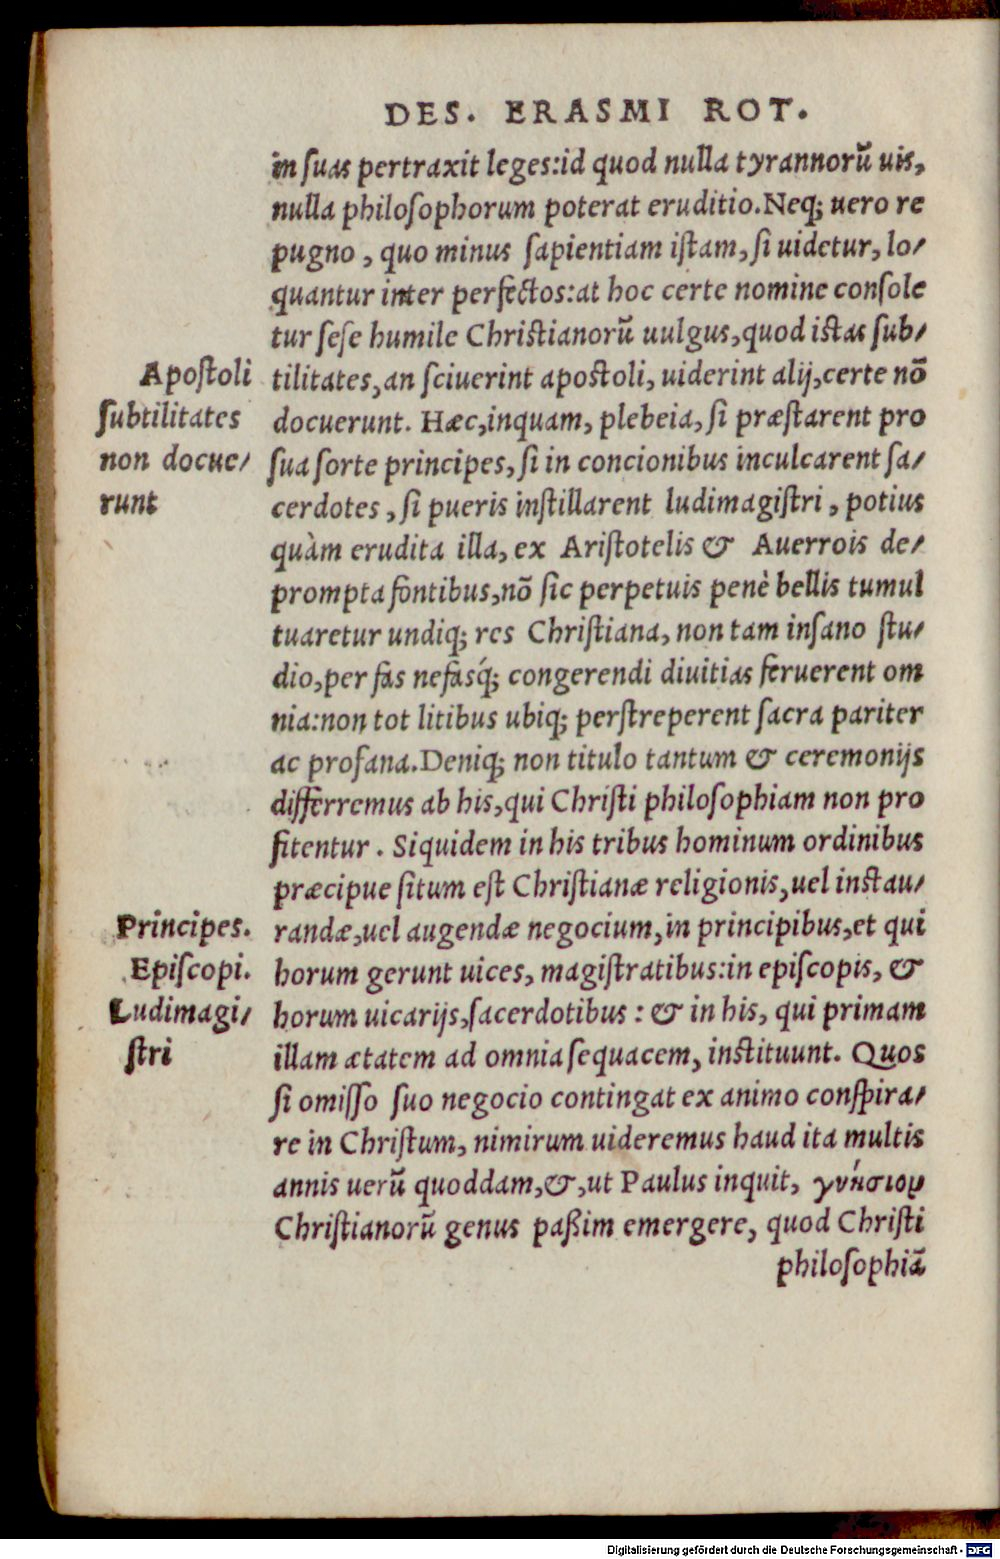 DES. ERASMI ROT.
in ſuas pertraxit leges:id quod nulla tyrannorũ uis,
nulla philoſophorum poterat eruditio.Neq; uero re
pugno, quo minus ſapientiam iſtam, ſi uidetur, lo-
quantur inter perfectos:at hoc certe nomine conſole
tur ſeſe humile Chriſtianorũ uulgus,quod iſtas ſub-
Apoſtoli
ſubtilitates
non docue-
runt
tilitates,an ſciuerint apoſtoli, uiderint alij,certe nõ
docuerunt. Hæc,inquam, plebeia, ſi præſtarent pro
ſua ſorte principes, ſi in concionibus inculcarent ſa-
cerdotes, ſi pueris inſtillarent ludimagiſtri, potius
quàm erudita illa, ex Ariſtotelis & Auerrois de-
prompta fontibus,nõ ſic perpetuis penè bellis tumul
tuaretur undiq; res Chriſtiana, non tam inſano ſtu-
dio,per fas nefasq́; congerendi diuitias feruerent om
nia:non tot litibus ubiq; perſtreperent ſacra pariter
ac profana.Deniq; non titulo tantum & ceremonijs
differremus ab his,qui Chriſti philoſophiam non pro
fitentur. Siquidem in his tribus hominum ordinibus
præcipue ſitum eſt Chriſtianæ religionis,uel inſtau-
Principes.
Epiſcopi.
Ludimagi-
ſtri
randæ,uel augendæ negocium,in principibus,et qui
horum gerunt uices, magiſtratibus:in epiſcopis, &
horum uicarijs,ſacerdotibus: & in his, qui primam
illam ætatem ad omnia ſequacem, inſtituunt. Quos
ſi omiſſo ſuo negocio contingat ex animo conſpira-
re in Chriſtum, nimirum uideremus haud ita multis
annis uerũ quoddam,&,ut Paulus inquit, γνήσιον
Chriſtianorũ genus paßim emergere, quod Chriſti
philoſophiã
Digitalisierung gefördert durch die Deutsche Forschungsgemeinschaft - DFG